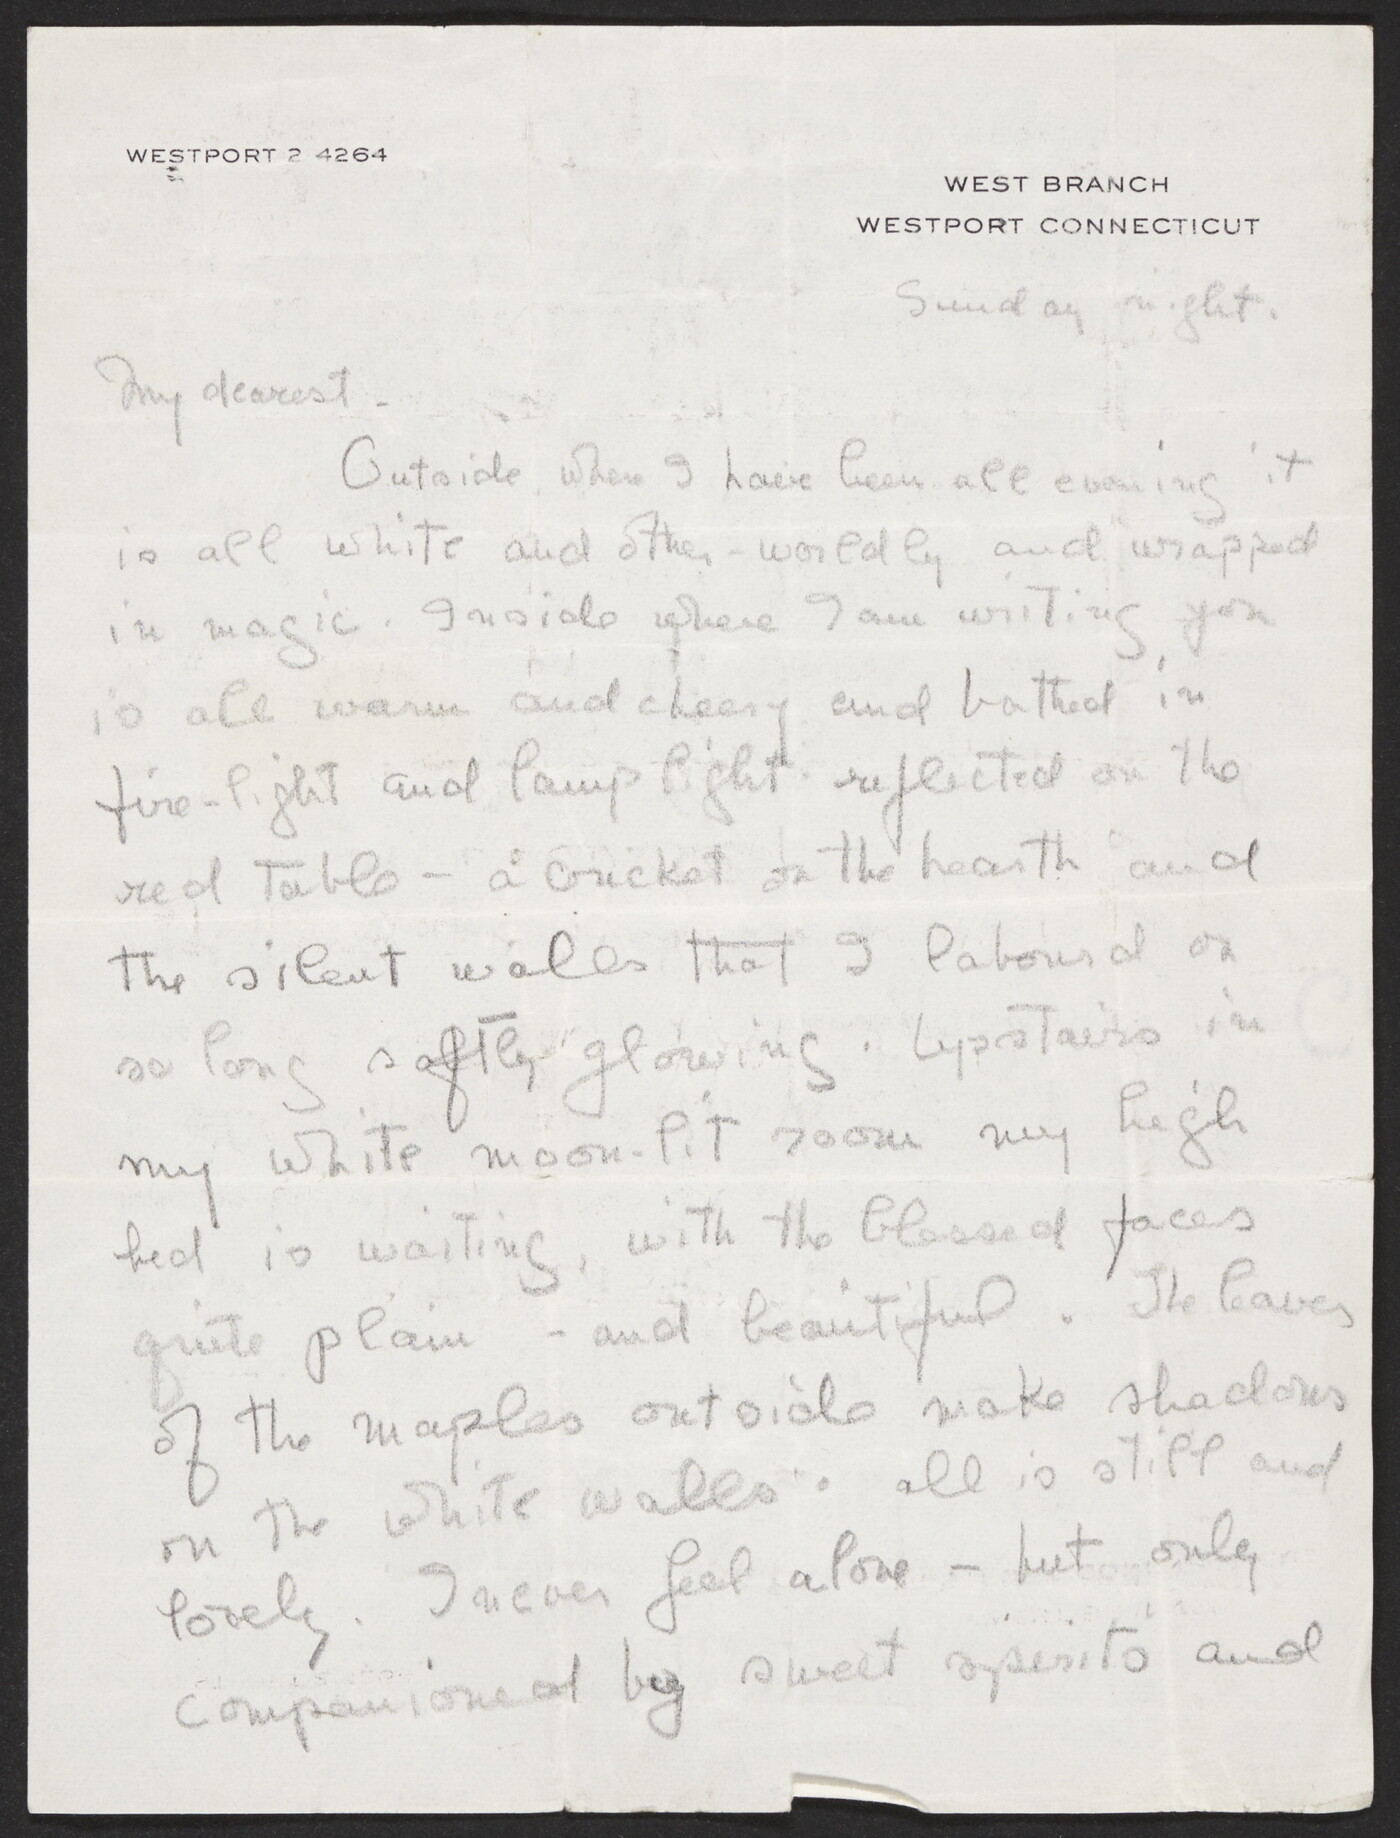 WESTPORT 2 4264
WEST BRANCH
WESTPORT CONNECTICUT
Sunday night.
My dearest -
Outside where I have been all evening it
is all white and other-worldly and wrapped
in magic. Inside where I am writing you
is all warm and cheery and bathed in
fire-light and lamp light reflected on the
red table - a cricket on the hearth and
the silent walls that I labourd on
so long softly glowing. Upstairs in
my white moon-lit room my high
bed is waiting, with the blessed faces
quite plain - and beautiful. The leaves
of the maples outside make shadows
on the white walls. all is still and
lovely. I never feel alone - but only
companioned by sweet spirits and